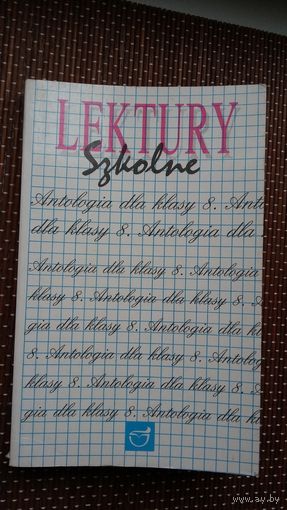 LEKTURY
Szkolne
Antologia dla klasy 8. Anto
dla klasy 8. Antologia dla
Antologia dla klasy 8. Antologia
klasy 8. Antologia dla klasy 8. A
gia dla klasy 8. Antologia dla kl
8. Antologia dla klasy 8. Antolog
klasy 8. Antologia dla klasy 8. A
gia dla klasy 8. Antologia dla kl
www.ay.by